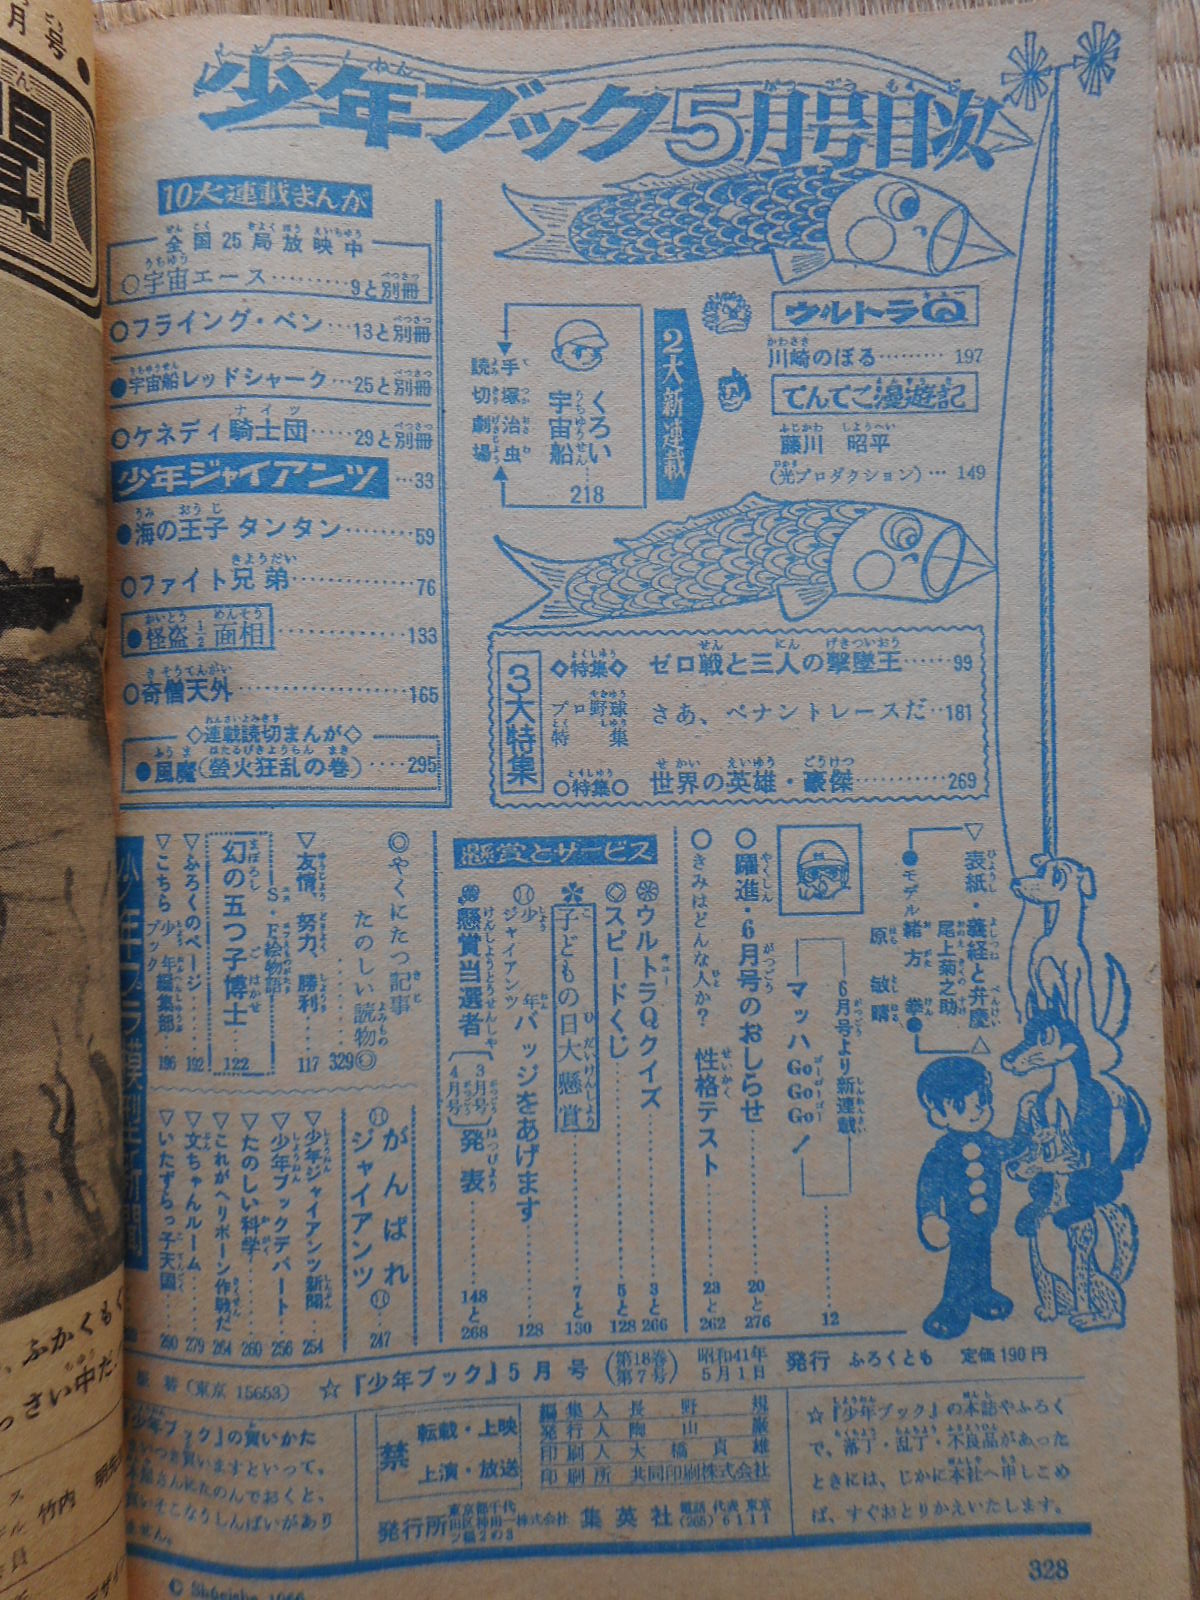 少年ブック5月号目次
10大連載まんが
全国25局放映中
○宇宙エース………9と別冊
○フライング・ベン…13と別冊
●宇宙船レッドシャーク…25と別冊
○ケネディ騎士団……29と別冊
少年ジャイアンツ…33
●海の王子 タンタン………59
○ファイト兄弟…………76
●怪盗½面相…………133
○奇僧天外…………165
◇連載読切まんが◇
●風魔(螢火狂乱の巻)……295
2大新連載
ウルトラQ
川崎のぼる………197
てんてこ漫遊記
藤川 昭平
(光プロダクション)…149
手塚治虫
読切劇場
くろい宇宙船…218
3大特集
◇特集◇ ゼロ戦と三人の撃墜王……99
プロ野球特集 さあ、ペナントレースだ…181
○特集○ 世界の英雄・豪傑…………269
▽表紙・義経と弁慶△
尾上菊之助
●モデル 緒方 拳●
原 敏晴
6月号より新連載
マッハGoGoGo!………12
●躍進・6月号のおしらせ………20と276
○きみはどんな人か? 性格テスト………23と262
懸賞とサービス
ウルトラQクイズ………3と266
◎スピードくじ………5と128
子どもの日大懸賞………7と130
少年ジャイアンツバッジをあげます………128
懸賞当選者〔3月号 4月号〕発表………148と268
◎やくにたつ記事
たのしい読物◎
329
▽友情、努力、勝利………117
S・F絵物語
幻の五つ子博士……122
▽ふろくのページ……192
▽こちら少年ブック編集部…196
がんばれジャイアンツ……247
▽少年ジャイアンツ新聞……254
▽少年ブックデパート……256
▽たのしい科学……260
▽これがヘリボーン作戦だ 264
▽文ちゃんルーム……279
▽いたずらっ子天国……280
(東京 15653) ☆『少年ブック』5月号 (第18巻 第7号) 昭和41年5月1日 発行 ふろくとも 定価190円
少年ブック』の買いかた
買いますといって、
本屋さんにたのんでおくと、
買いそこなうしんぱいがあり
ません。
禁 転載・上映
上演・放送
編集人 長野 規
発行人 陶山 巌
印刷人 大橋貞雄
印刷所 共同印刷株式会社
発行所 東京都千代田区神田一ツ橋2の3 株式会社 集英社 電話 代表 東京 (265) 6111
☆『少年ブック』の本誌やふろく
で、落丁・乱丁・不良品があった
ときには、じかに本社へ申しこめ
ば、すぐおとりかえいたします。
© Shueisha 1966
328
月号
ふかくもぐ
っさい中だ
竹内